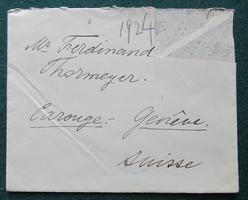 1924
Mr Ferdinand
Thormeyer.
Carouge - Genève.
Suisse